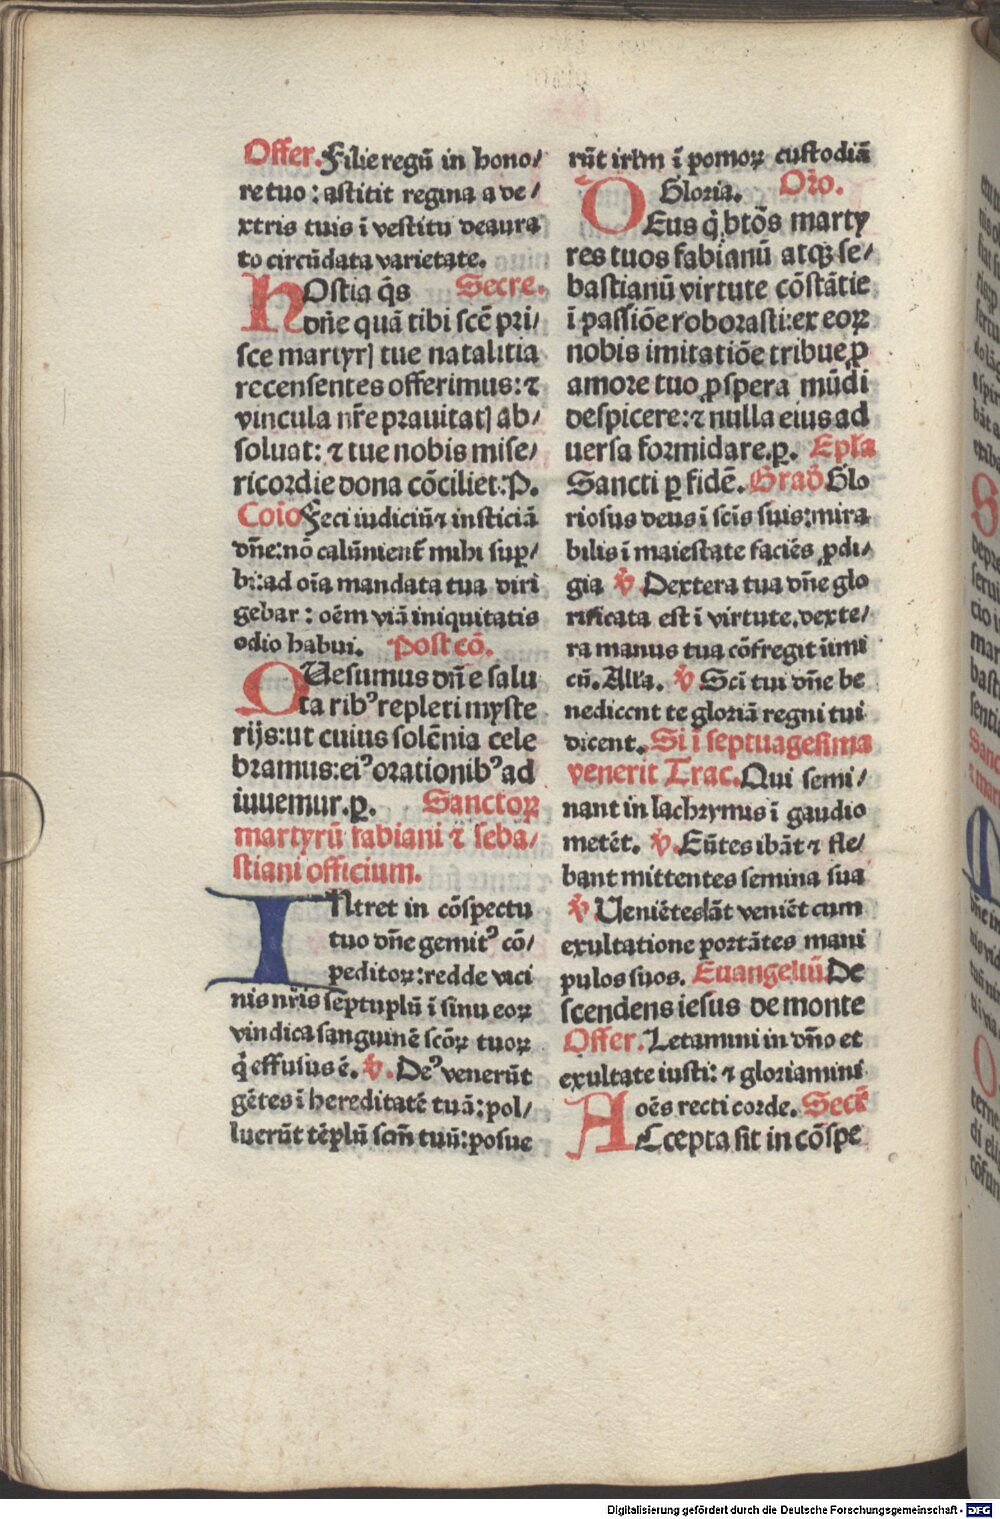 Offer. Filie regū in hono/
re tuo : astitit regina a de/
xtris tuis ī vestitu deaura
to circūdata varietate.
HOstia q̄s Secre.
dn̄e quā tibi scē pri/
sce martyrꝭ tue natalitia
recensentes offerimus: ⁊
vincula nr̄e prauitatꝭ ab/
soluat: ⁊ tue nobis mise/
ricordie dona cōciliet. P.
Coīo Feci iudiciū ⁊ insticiā
dn̄e: nō calūnient̄ mihi suꝑ/
bi: ad oīa mandata tua diri
gebar : oēm viā iniquitatis
odio habui. Post cō.
QUesumus dn̄e salu
taribꝰ repleti myste
rijs: ut cuius solēnia cele
bramus: eiꝰ orationibꝰ ad
iuuemur. ꝑ. Sanctoꝝ
martyrū fabiani ⁊ seba/
stiani officium.
INtret in cōspectu
tuo dn̄e gemitꝰ cō/
peditoꝝ: redde vici
nis nr̄is septuplū ī sinu eoꝝ
vindica sanguinē scōꝝ tuoꝝ
q̄ effusus ē. v̄. Deꝰ venerūt
gētes ī hereditatē tuā: pol/
luerūt tēplū scm̄ tuū: posue
rūt irlm̄ ī pomoꝝ custodiā
Gloria. Oro.
DEus q̄ btōs marty
res tuos fabianū atqꝫ se/
bastianū virtute cōstātie
ī passiōe roborasti: ex eoꝝ
nobis imitatiōe tribue ꝓ
amore tuo ꝓspera mūdi
despicere: ⁊ nulla eius ad
uersa formidare. ꝑ. Epl̄a
Sancti ꝑ fidē. Grad̄ Glo
riosus deus ī scīs suis: mira
bilis ī maiestate faciēs ꝓdi/
gia v̄ Dextera tua dn̄e glo
rificata est ī virtute, dexte/
ra manus tua cōfregit īimi
cū. All̄a. v̄ Scī tui dn̄e be
nedicent te gloriā regni tui
dicent. Si ī septuagesima
venerit Trac. Qui semi/
nant in lachrymis ī gaudio
metēt. v̄. Eūtes ibāt ⁊ fle/
bant mittentes semina sua
v̄ Ueniētes āt veniēt cum
exultatione portātes mani
pulos suos. Euangeliū De
scendens iesus de monte
Offer. Letamini in dn̄o et
exultate iusti: ⁊ gloriamini
oēs recti corde. Secr̄
ACcepta sit in cōspe
Digitalisierung gefördert durch die Deutsche Forschungsgemeinschaft - DFG